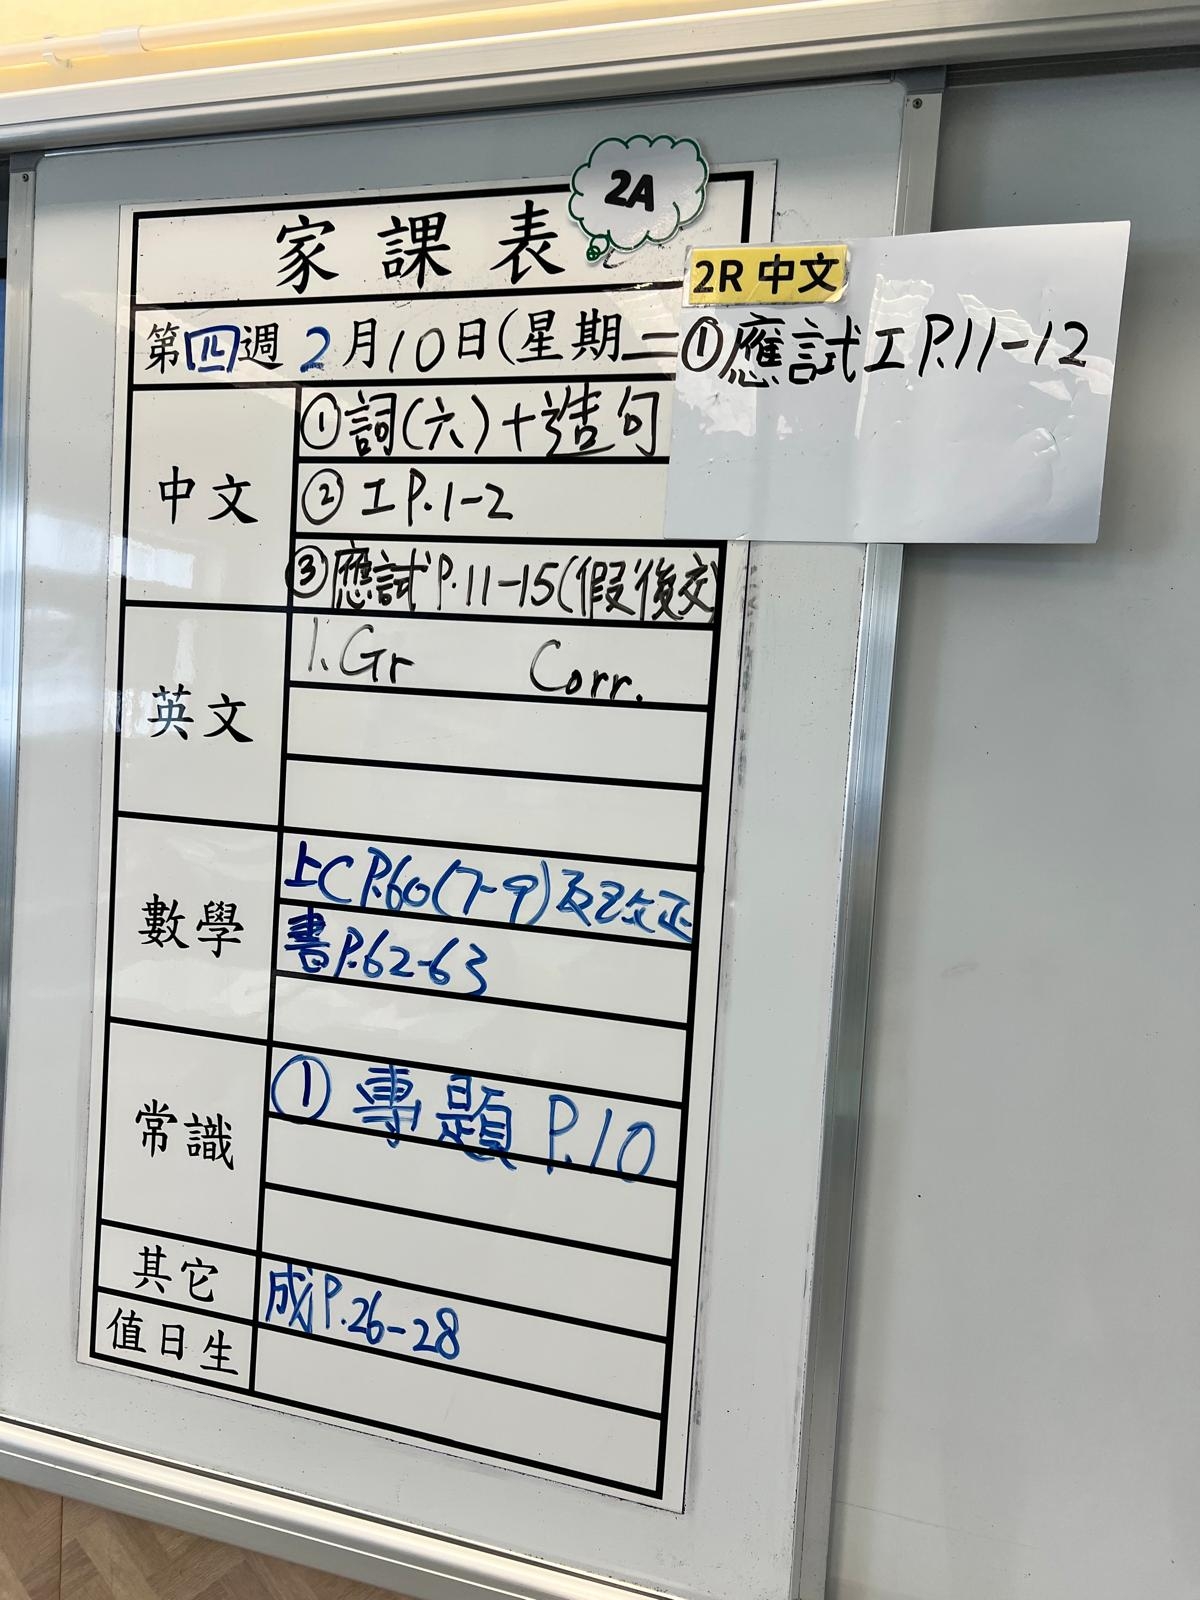 2A
家課表
第四週2月10日(星期二
2R 中文
①應試工P.11-12
中文
①詞(六)+造句
②工P.1-2
③應試P.11-15(假後交)
英文
1. Gr Corr.
數學
上C P.60(7-9)及已改正
書P.62-63
常識
①專題 P.10
其它
成P.26-28
值日生